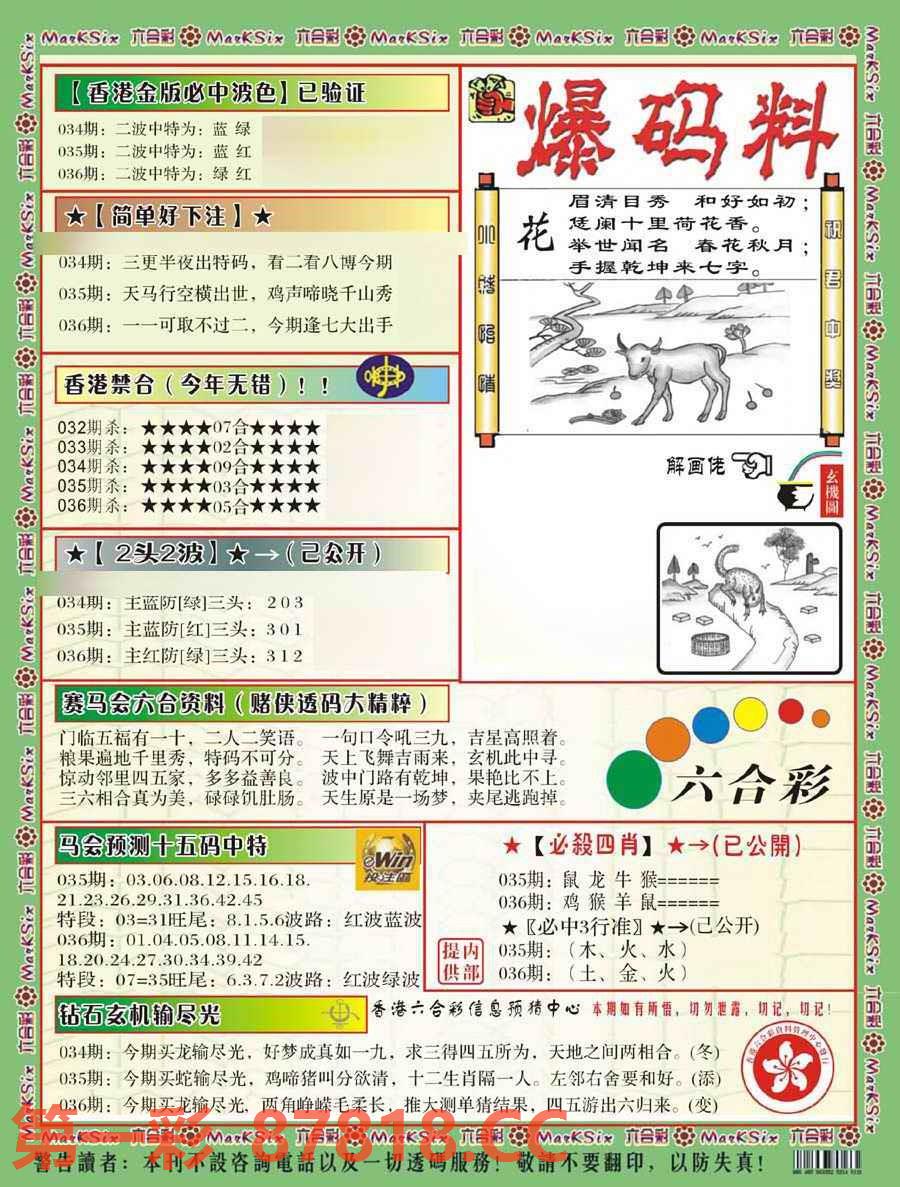 MarKSix 六合彩 MarKSix 六合彩 MarKSix 六合彩 MarKSix 六合彩 MarKSix 六合彩
【香港金版必中波色】已验证
034期：二波中特为：蓝 绿
035期：二波中特为：蓝 红
036期：二波中特为：绿 红
★【简单好下注】★
034期：三更半夜出特码，看二看八博今期
035期：天马行空横出世，鸡声啼晓千山秀
036期：一一可取不过二，今期逢七大出手
香港禁合（今年无错）！！
032期杀：★★★★07合★★★★
033期杀：★★★★02合★★★★
034期杀：★★★★09合★★★★
035期杀：★★★★03合★★★★
036期杀：★★★★05合★★★★
★【 2头2波】★→(已公开)
034期：主蓝防[绿]三头：2 0 3
035期：主蓝防[红]三头：3 0 1
036期：主红防[绿]三头：3 1 2
爆码料
花
眉清目秀 和好如初；
恁阑十里荷花香。
举世闻名 春花秋月；
手握乾坤来七字。
祝君中奖
解画佬
玄機圖
赛马会六合资料（赌侠透码大精粹）
门临五福有一十，二人二笑语。 一句口令吼三九，吉星高照着。
粮果遍地千里秀，特码不可分。 天上飞舞吉雨来，玄机此中寻。
惊动邻里四五家，多多益善良。 波中门路有乾坤，果艳比不上。
三六相合真为美，碌碌饥肚肠。 天生原是一场梦，夹尾逃跑掉。
六合彩
马会预测十五码中特
eWin
投注區
035期：03.06.08.12.15.16.18.
21.23.26.29.31.36.42.45
特段：03=31旺尾：8.1.5.6波路：红波蓝波
036期：01.04.05.08.11.14.15.
18.20.24.27.30.34.39.42
特段：07=35旺尾：6.3.7.2波路：红波绿波
★【必殺四肖】★→(已公開)
035期：鼠 龙 牛 猴======
036期：鸡 猴 羊 鼠======
★〖必中3行准〗★→(已公开)
035期：（木、火、水）
036期：（土、金、火）
提内
供部
钻石玄机输尽光
香港六合彩信息预猜中心 本期如有所悟，切勿泄露，切记，切记！
034期：今期买龙输尽光，好梦成真如一九，求三得四五所为，天地之间两相合。(冬)
035期：今期买蛇输尽光，鸡啼猪叫分欲清，十二生肖隔一人。左邻右舍要和好。(添)
036期：今期买龙输尽光，两角峥嵘毛柔长，推大测单猜结果，四五游出六归来。(变)
第一彩 87818.CC
警告讀者：本刊不設咨詢電話以及一切透碼服務！敬請不要翻印，以防失真！